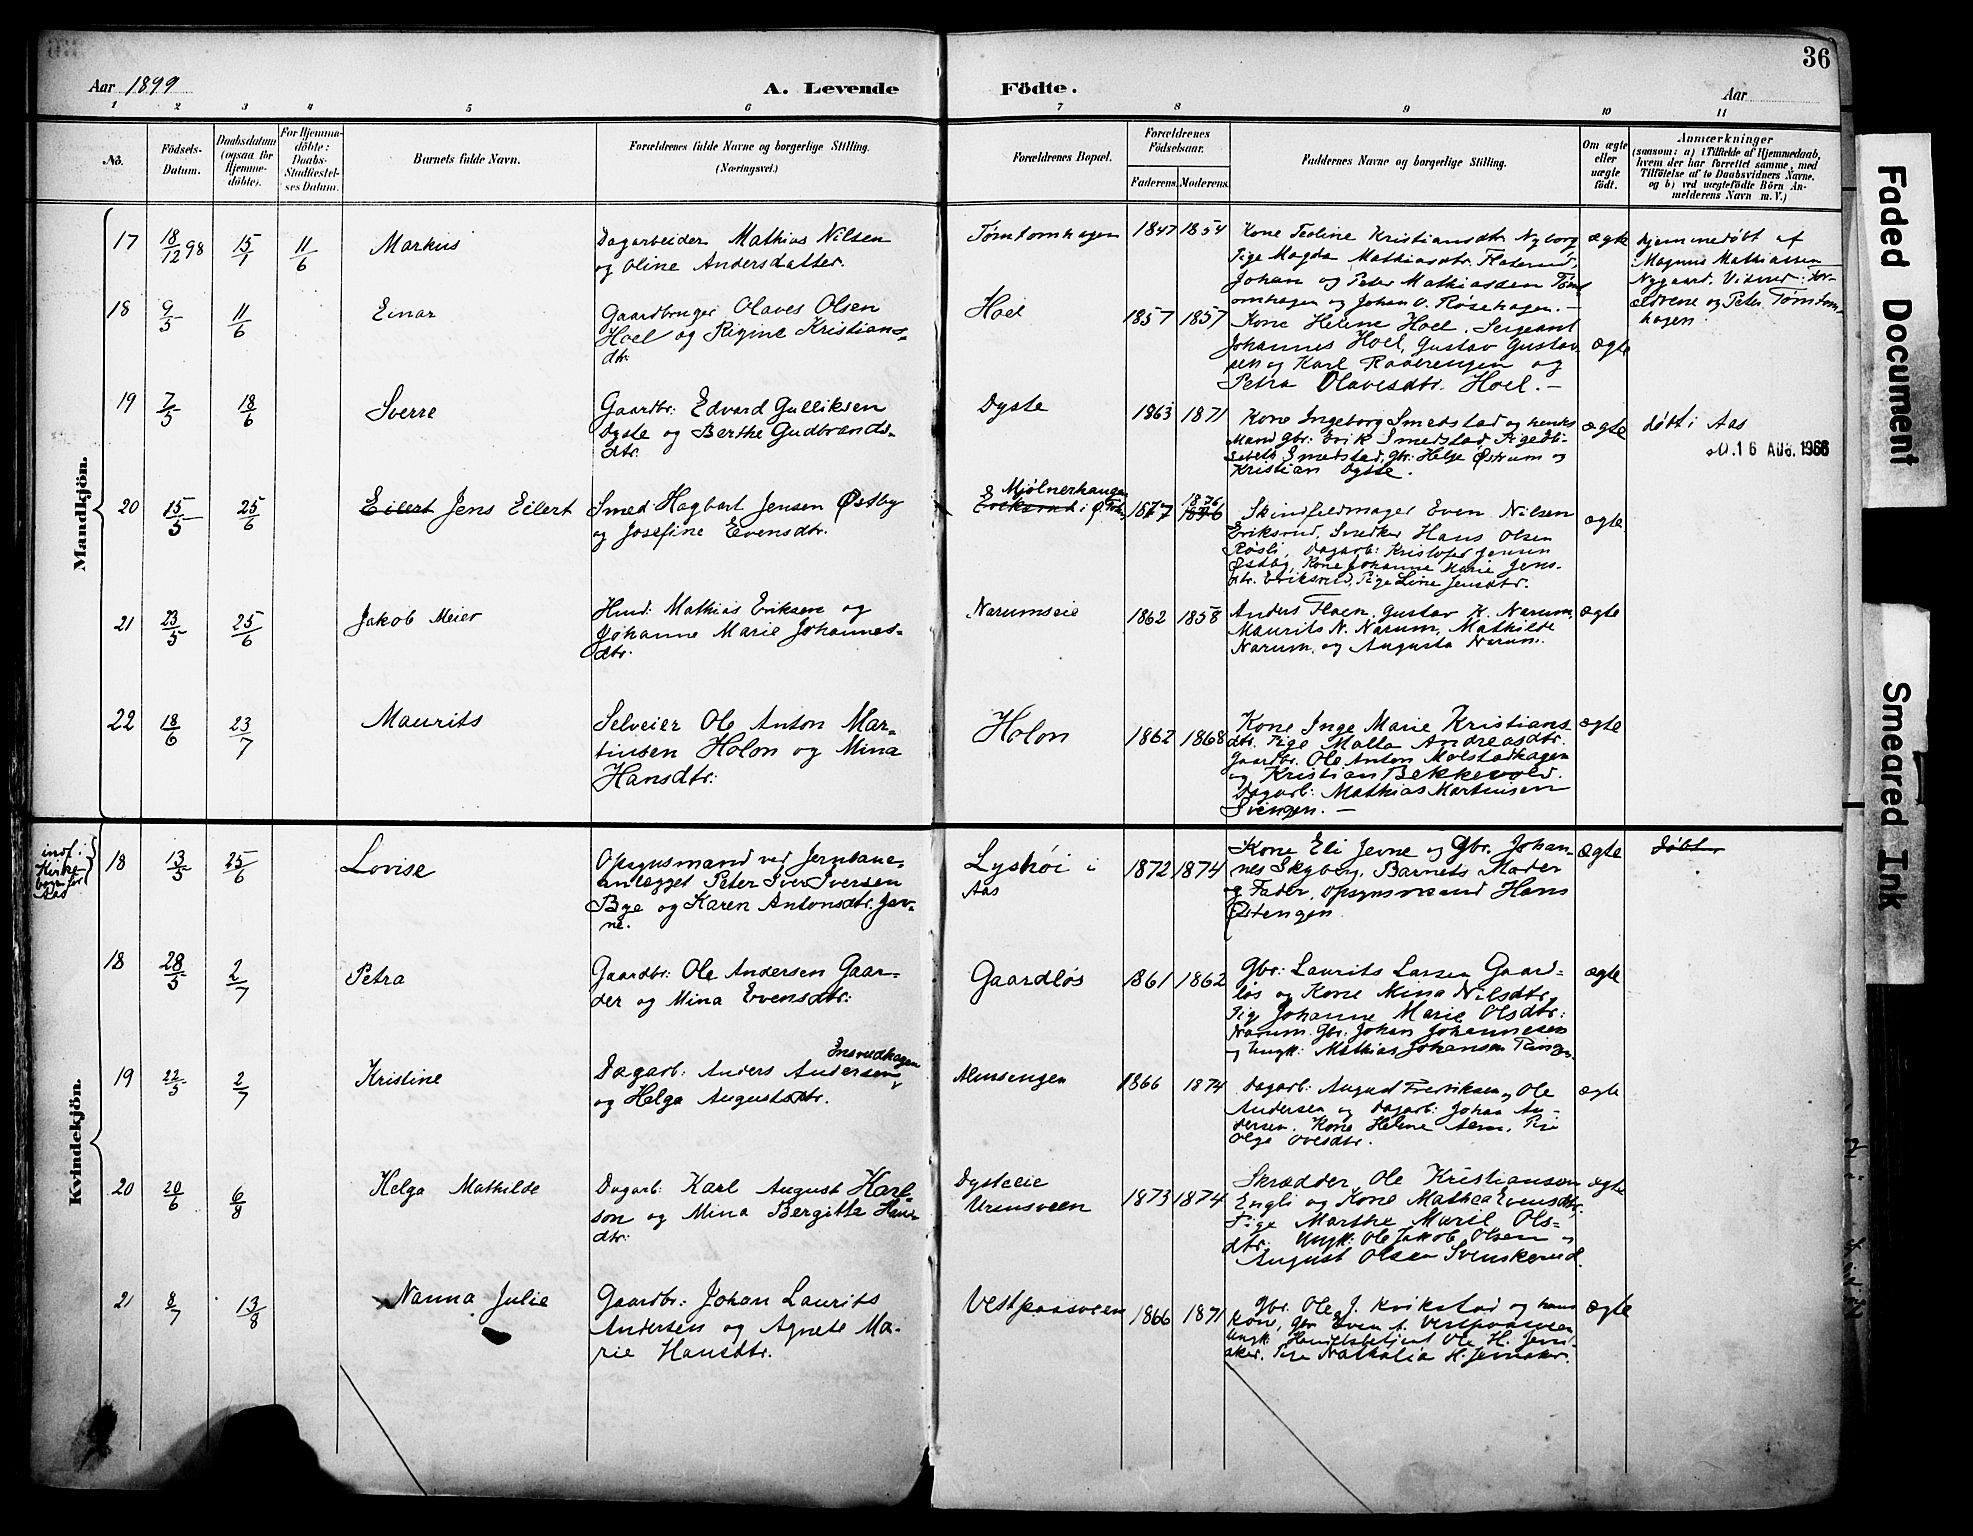 36
Aar 1899
A. Levende
Födte.
Aar
1 2 3 4 5 6 7 8 9 10 11
No.
Födsels-Datum.
Daabsdatum (ogsaa for Hjemme-döbte).
For Hjemme-döbte: Daabs-Stadfæstel-ses Datum.
Barnets fulde Navn.
Forældrenes fulde Navne og borgerlige Stilling.
(Næringsvei.)
Forældrenes Bopæl.
Forældrenes Födselsaar.
Faderens. Moderens.
Faddernes Navne og borgerlige Stilling.
Om ægte eller uægte födt.
Anmærkninger
(saasom: a) i Tilfælde af Hjemmedaab,
hvem der har forrettet samme, med
Tilföielse af to Daabsvidners Navne,
og b) ved uægtefödte Börn An-
melderens Navn m. V.)
Mandkjön.
17 18/12 98 15/1 11/6 Markus
Dagarbeider Mathias Nilsen
og Oline Andersdatter.
Tømtomhagen 1847 1854
Kone Teoline Kristiansdtr. Nyborg
Pige Magda Mathiasdtr.
Johan og Peter Mathiassen Tømt-
omhagen og Johan O. Røsehagen. –
ægte
Hjemmedøbt af
Magnus Mathiassen
Nygaard. Vidner: For-
ældrene og Peter Tømtom-
hagen.
18 9/5 11/6 Einar
Gaardbruger Olaves Olsen
Hoel og Regine Kristians-
dtr.
Hoel 1857 1857
Kone Helene Hoel, Sergeant
Johannes Hoel, Gustav Gustav-
sen og Karl Raaerengen og
Petra Olavesdtr. Hoel. –
ægte
19 7/5 18/6 Sverre
Gaardbr: Edvard Gulliksen
Dyste og Berthe Gudbrands-
dtr.
Dyste 1863 1871
Kone Ingeborg Smedstad og hendes
Mand Gbr: Erik Smedstad, Pige Eli-
sebeth Smedstad, Gbr: Helge Østrum og
Kristian Dyste.
ægte
døbt i Aas
16 AUG. 1966
20 15/5 25/6 Eilert Jens Eilert
Smed Hagbart Jensen Østby
og Josefine Evensdtr.
Mjölnerhaugen
Eriksrud i Ø.
1877 1876
Skindfeldmager Even Nilsen
Eriksrud, Snedker Hans Olsen
Røsli, Dagarb: Kristofer Jensen
Østby, Kone Johanne Marie Jens-
dtr. Eriksrud, Pige Line Jensdtr.
ægte
21 23/5 25/6 Jakob Meier
Hmd: Mathias Eriksen og
Johanne Marie Johannes-
dtr.
Narumseie 1862 1858
Anders Floen, Gustav K. Narum,
Maurits N. Narum, Mathilde
Narum, og Augusta Narum.
ægte
22 18/6 23/7 Maurits
Selveier Ole Anton Mar-
tinsen Holon og Mina
Hansdtr:
Holon 1862 1868
Kone Inge Marie Kristians-
dtr. Pige Malla Andreasdtr.
Gaardbr. Ole Anton Molstadhagen
og Kristian Bekkevold.
Dagarb: Mathias Martinsen
Svingen. –
ægte
Kvindekjön.
indf. i
Kirke-
bogen for
Aas
18 13/5 25/6 Lovise
Opsynsmand ved Jernbane-
anlægget Peter Iver Iversen
Bye og Karen Antonsdtr. Jev-
ne.
Lyshøi i
Aas
1872 1874
Kone Eli Jevne og Gbr. Johan-
nes Skyberg, Barnets Moder
og Fader, Opsynsmand Hans
Østengen
ægte
døbt
18 28/5 2/7 Petra
Gaardbr: Ole Andersen Gaar-
der og Mina Evensdtr:
Gaardløs 1861 1862
Gbr: Laurits Larsen Gaard-
løs og Kone Mina Nilsdtr,
Pig Johanne Marie Olsdtr:
Narum. Gbr: Johan Johannesen
og Ungk: Mathias Johansen
ægte
19 22/5 2/7 Kristine
Dagarb: Anders Andersen
og Helga Augustsdtr.
Almsengen 1866 1874
Dagarb: August Fredriksen, Ole
Andersen og Dagarb: Johan An-
dersen, Kone Helene
Olga Ovesdtr.
ægte
20 20/6 6/8 Helga Mathilde
Dagarb: Karl August Karl-
son og Mina Bergitte Hans-
dtr:
Dysteeie
Ursusveen
1873 1874
Skrædder Ole Kristiansen
Engli og Kone Mathea Evensdtr,
Pige Marthe Maril Ols-
dtr: Ungk: Ole Jakob Olsen og
August Olsen Svenskerud.
ægte
21 8/7 13/8 Nanna Julie
Gaardbr: Johan Laurits
Andersen og Agnete Ma-
rie Hansdtr.
Vestpaasveen 1866 1871
Gbr. Ole J. Kvikstad og hans
Kone, Gbr Even A. Vestpaasveen,
Ungk: Handelsbetjent Ole H. Jevn-
aker. Pige Nathalia H. Jevnaker.
ægte
Faded Document
Smeared Ink